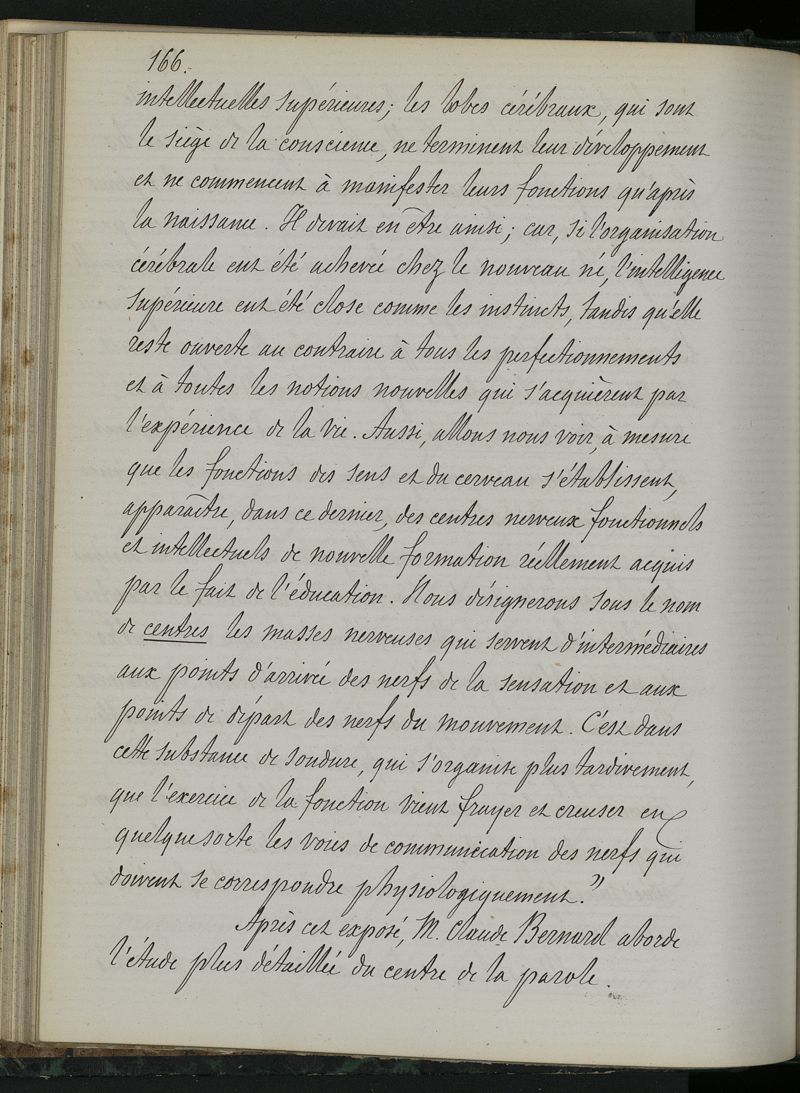 166.
intellectuelles supérieures; les lobes cérébraux, qui sont
le siège de la conscience, ne terminent leur développement
et ne commencent à manifester leurs fonctions qu'après
la naissance. Il devait en être ainsi; car, si l'organisation
cérébrale eut été achevée chez le nouveau né, l'intelligence
supérieure eut été close comme les instincts, tandis qu'elle
reste ouverte au contraire à tous les perfectionnements
et à toutes les notions nouvelles qui s'acquièrent par
l'expérience de la vie. Aussi, allons nous voir, à mesure
que les fonctions des sens et du cerveau s'établissent,
apparaître, dans ce dernier, des centres nerveux fonctionnels
et intellectuels de nouvelle formation réellement acquis
par le fait de l'éducation. Nous désignerons sous le nom
de centres les masses nerveuses qui servent d'intermédiaires
aux points d'arrivée des nerfs de la sensation et aux
points de départ des nerfs du mouvement. C'est dans
cette substance de soudure, qui s'organise plus tardivement,
que l'exercice de la fonction vient frayer et creuser en
quelque sorte les voies de communication des nerfs qui
doivent se correspondre physiologiquement."
Après cet exposé, M. Claude Bernard aborde
l'étude plus détaillée du centre de la parole.